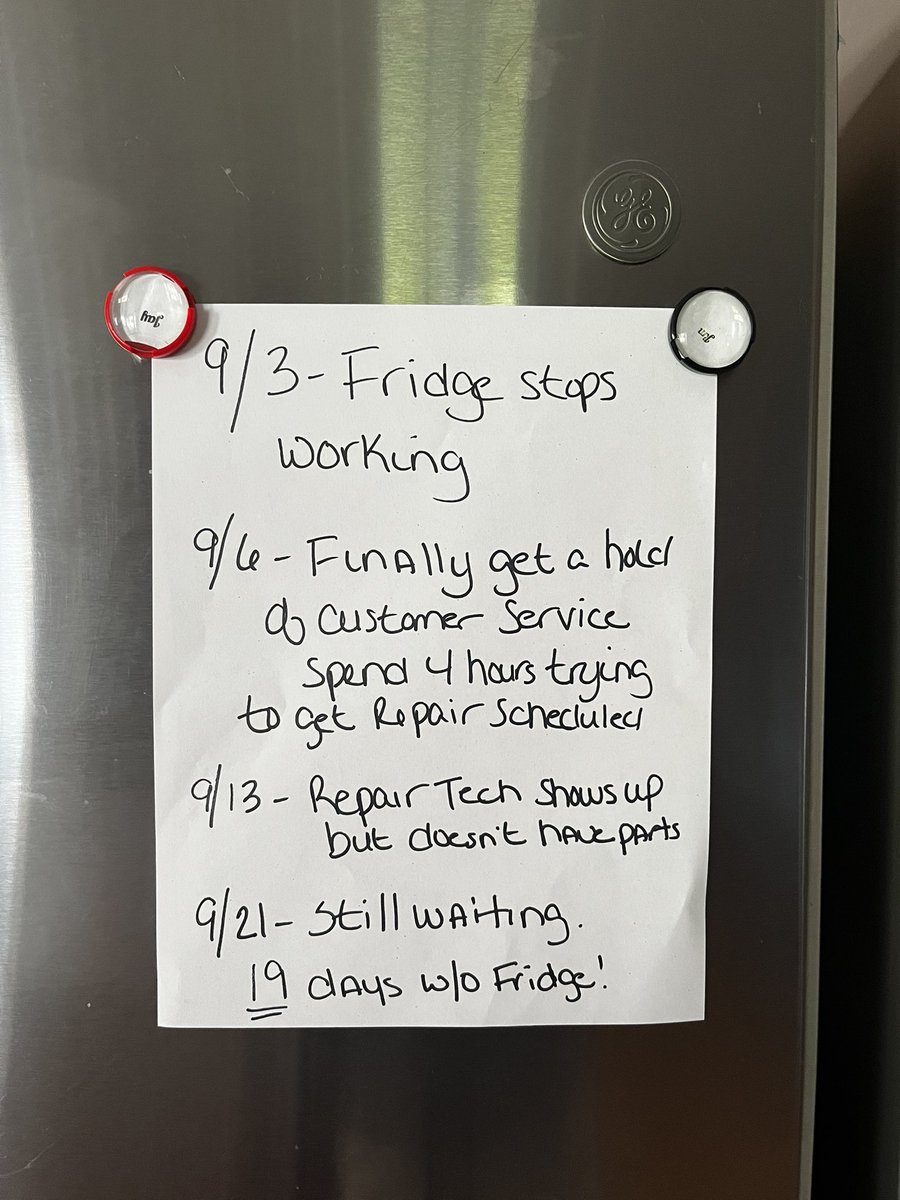 GE
Jay
Jen
9/3 - Fridge stops
working
9/6 - Finally get a hold
of Customer Service
Spend 4 hours trying
to get Repair Scheduled
9/13 - Repair Tech shows up
but doesn't have parts
9/21 - Still waiting.
19 days w/o Fridge!